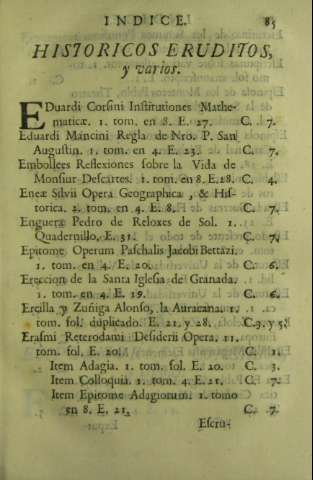 INDICE. 85
HISTORICOS ERUDITOS,
y varios.
EDuardi Corsini Institutiones Mathe-
maticæ. 1. tom. en 8. E. 27. C. 7.
Eduardi Mancini Regla de Nro. P. San
Augustin. 1. tom. en 4. E. 23. C. 7.
Embollees Reflexiones sobre la Vida de
Monsiur Descartes. 1. tom. en 8. E. 28. C. 4.
Eneæ Silvii Opera Geographica, & His-
torica. 2. tom. en 4. E. 8. C. 7.
Enguera Pedro de Reloxes de Sol. 1.
Quadernillo, E. 51. C. 7.
Epitome Operum Paschalis Jacobi Bettazi.
1. tom. en 4. E. 20. C. 6.
Ereccion de la Santa Iglesia de Granada.
1. tom. en 4. E. 19. C. 6.
Ercilla y Zuñiga Alonso, la Auracana. 1.
tom. fol. duplicado. E. 21. y 28. C. 3. y 5.
Erasmi Reterodami Desiderii Opera. 11.
tom. fol. E. 20. C. 1.
Item Adagia. 1. tom. fol. E. 20. C. 3.
Item Colloquia. 1. tom. 4. E. 21. C. 7.
Item Epitome Adagiorum. 1. tomo
en 8. E. 21. C. 7.
Escru-